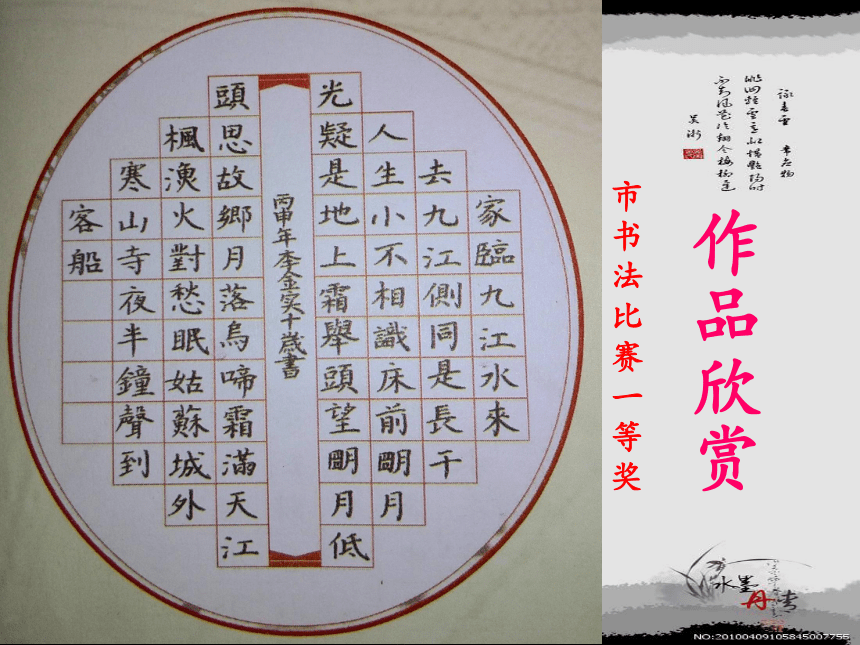 家臨九江水來
去九江側同是長干
人生小不相識床前朙月
光疑是地上霜舉頭望朙月低
丙申年李金实十歲書
頭思故鄉月落烏啼霜滿天江
楓漁火對愁眠姑蘇城外
寒山寺夜半鐘聲到
客船
市书法比赛一等奖
作品欣赏
咏春雪 韦应物
水墨丹青
NO:20100409105845007755